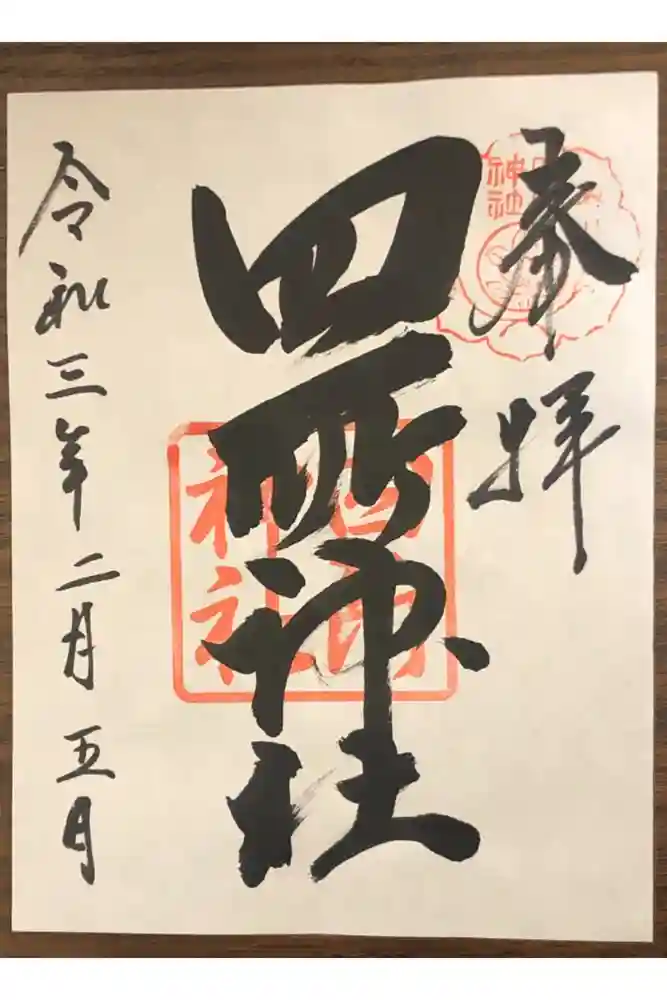 奉拝
四所神社
四所神社
神社
令和三年二月五日